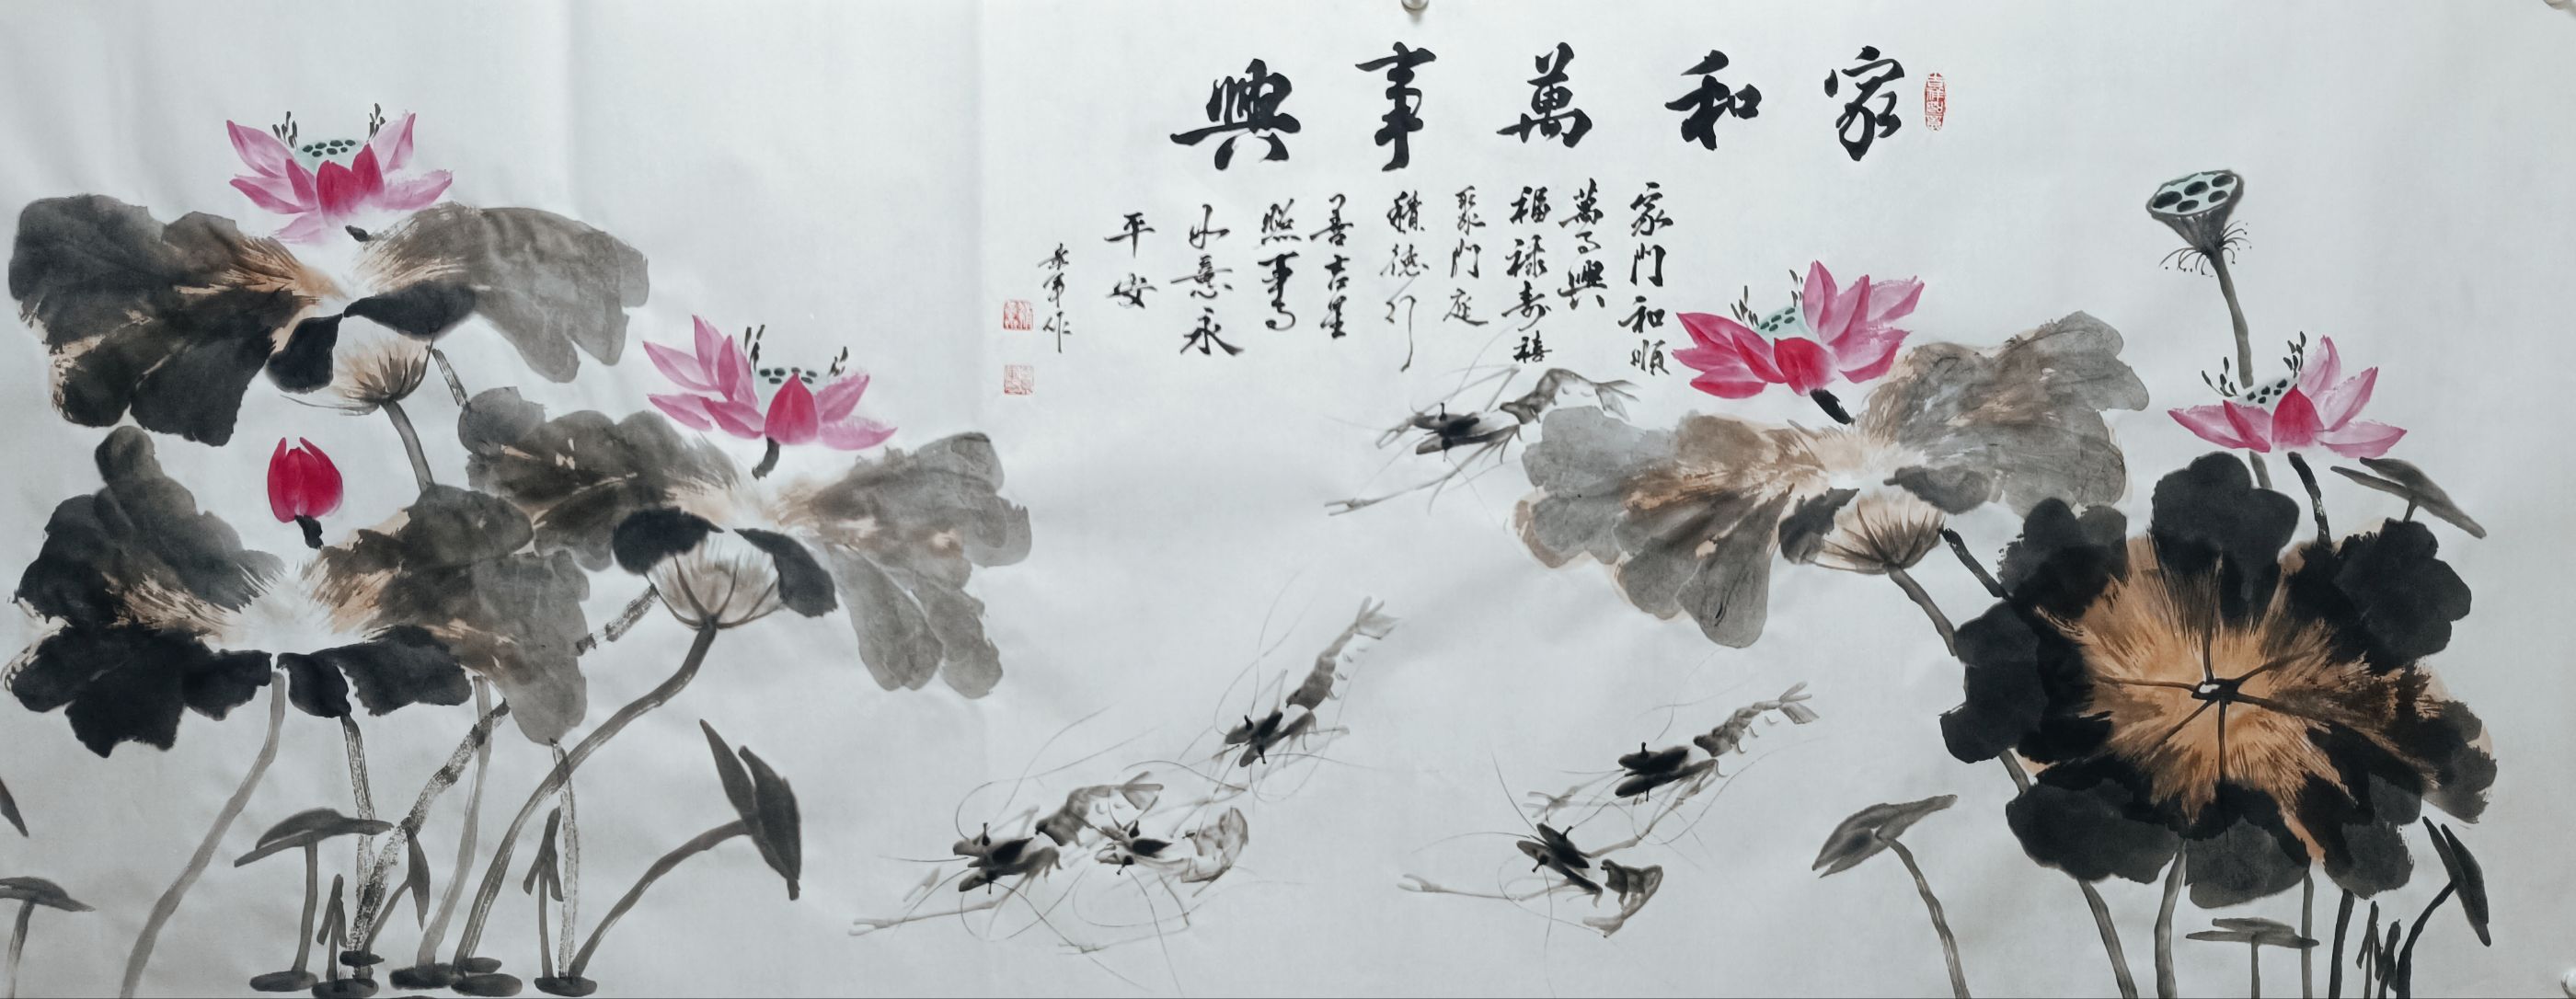 家和萬事興
家門和順
萬事興
福禄壽禧
聚門庭
積德行
善吉星
照事事
如意永
平安